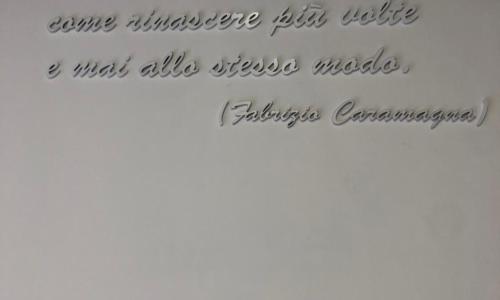 come rinascere più volte
e mai allo stesso modo.
(Fabrizio Caramagna)